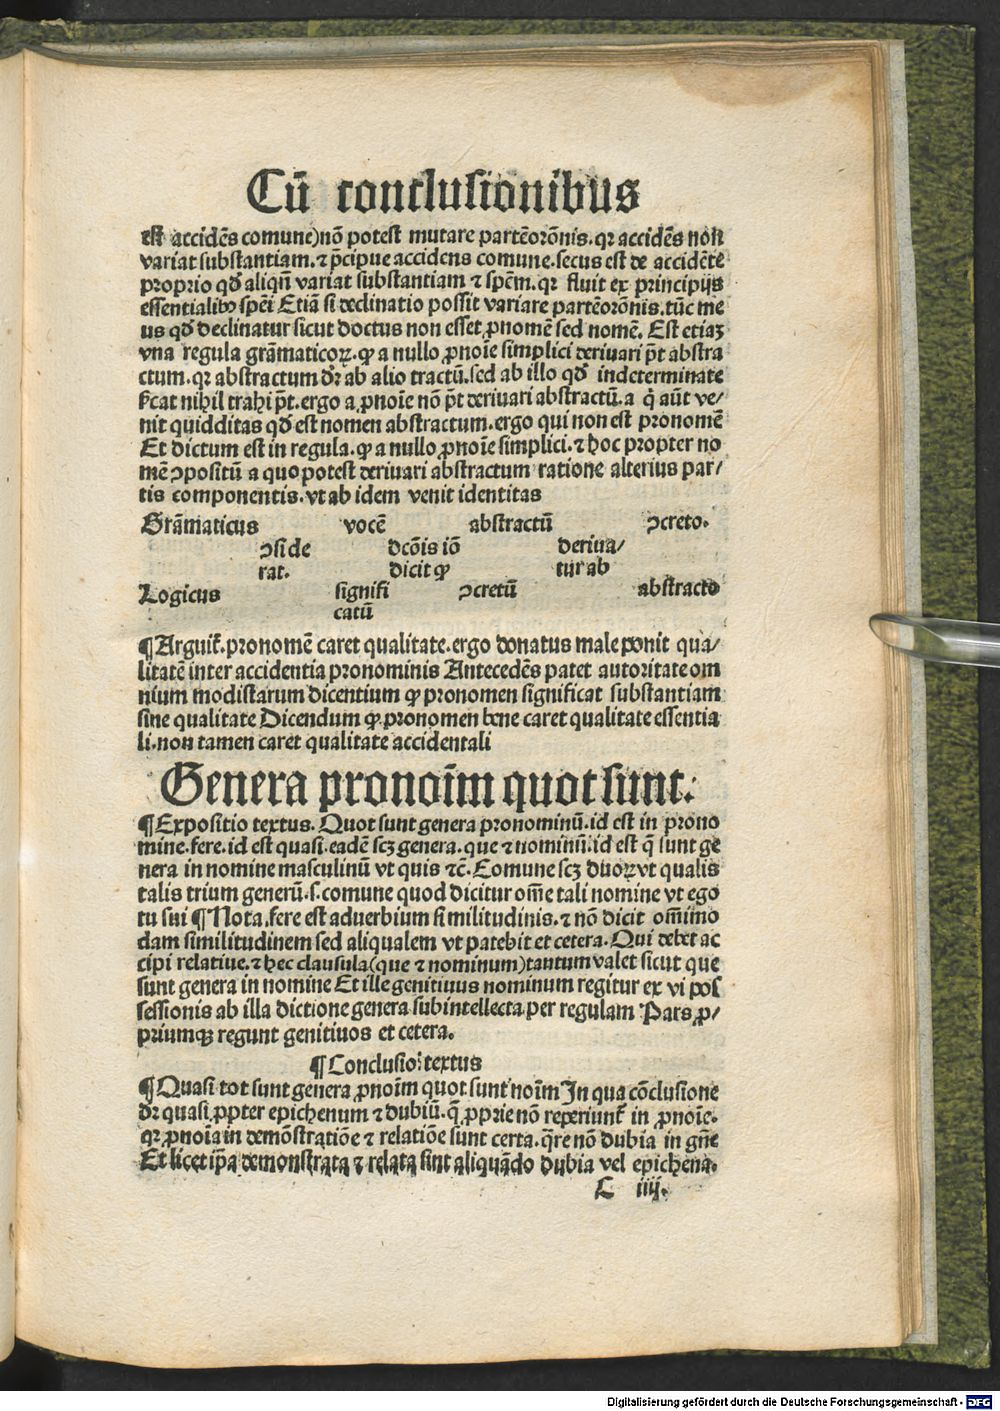 Cū conclusionibus
est accidēs comune)nō potest mutare partēorōnis. qꝛ accidēs non
variat substantiam. ⁊ p̄cipue accidens comune. secus est de accidēte
proprio qd̄ aliqn̄ variat substantiam ⁊ spēm. qꝛ fluit ex principijs
essentialibꝰ spēi Etiā si declinatio possit variare partēorōnis. tūc me
us qd̄ declinatur sicut doctus non esset ꝓnomē sed nomē. Est etiaꝫ
vna regula grāmaticoꝝ. ꝙ a nullo ꝓnoīe simplici deriuari pōt abstra
ctum. qꝛ abstractum dꝛ̄ ab alio tractū. sed ab illo qd̄ indeterminate
significat nihil trahi pōt. ergo a ꝓnoīe nō pōt deriuari abstractū. a q̄ aūt ve⸗
nit quidditas qd̄ est nomen abstractum. ergo qui non est pronomē
Et dictum est in regula. ꝙ a nullo ꝓnoīe simplici. ⁊ hoc propter no
mē ꝯpositū a quo potest deriuari abstractum ratione alterius par⸗
tis componentis. vt ab idem venit identitas
Grāmaticus vocē abstractū ꝯcreto.
ꝯside dcōis iō deriua⸗
rat. dicit ꝙ tur ab
Logicus signifi ꝯcretū abstracto
catū
¶ Arguit̄. pronomē caret qualitate. ergo donatus male ponit qua⸗
litatē inter accidentia pronominis Antecedēs patet autoritate om
nium modistarum dicentium ꝙ pronomen significat substantiam
sine qualitate Dicendum ꝙ pronomen bene caret qualitate essentia
li. non tamen caret qualitate accidentali
Genera pronoīm quot sunt.
¶ Expositio textus. Quot sunt genera pronominū. id est in prono
mine. fere. id est quasi. eadē scꝫ genera. que ⁊ nominū. id est q̄ sunt ge
nera in nomine masculinū vt quis ⁊c̄. Comune scꝫ duoꝝ vt qualis
talis trium generū. s. comune quod dicitur om̄e tali nomine vt ego
tu sui ¶ Nota. fere est aduerbium similitudinis. ⁊ nō dicit om̄imo
dam similitudinem sed aliqualem vt patebit et cetera. Qui debet ac
cipi relatiue. ⁊ hec clausula(que ⁊ nominum)tantum valet sicut que
sunt genera in nomine Et ille genitiuus nominum regitur ex vi pos
sessionis ab illa dictione genera subintellecta per regulam Pars ꝓ⸗
priumqꝫ regunt genitiuos et cetera.
¶ Conclusio textus
¶ Quasi tot sunt genera ꝓnoīm quot sunt noīm In qua cōclusione
dꝛ̄ quasi ꝓpter epichenum ⁊ dubiū. q̄ ꝓprie nō reperiunt̄ in ꝓnoīe.
qꝛ ꝓnoīa in demōstratiōe ⁊ relatiōe sunt certa. q̄re nō dubia in gn̄e
Et licet ip̄a demonstrata ⁊ relata sint aliquādo dubia vel epichena.
C iiij.
Digitalisierung gefördert durch die Deutsche Forschungsgemeinschaft - DFG